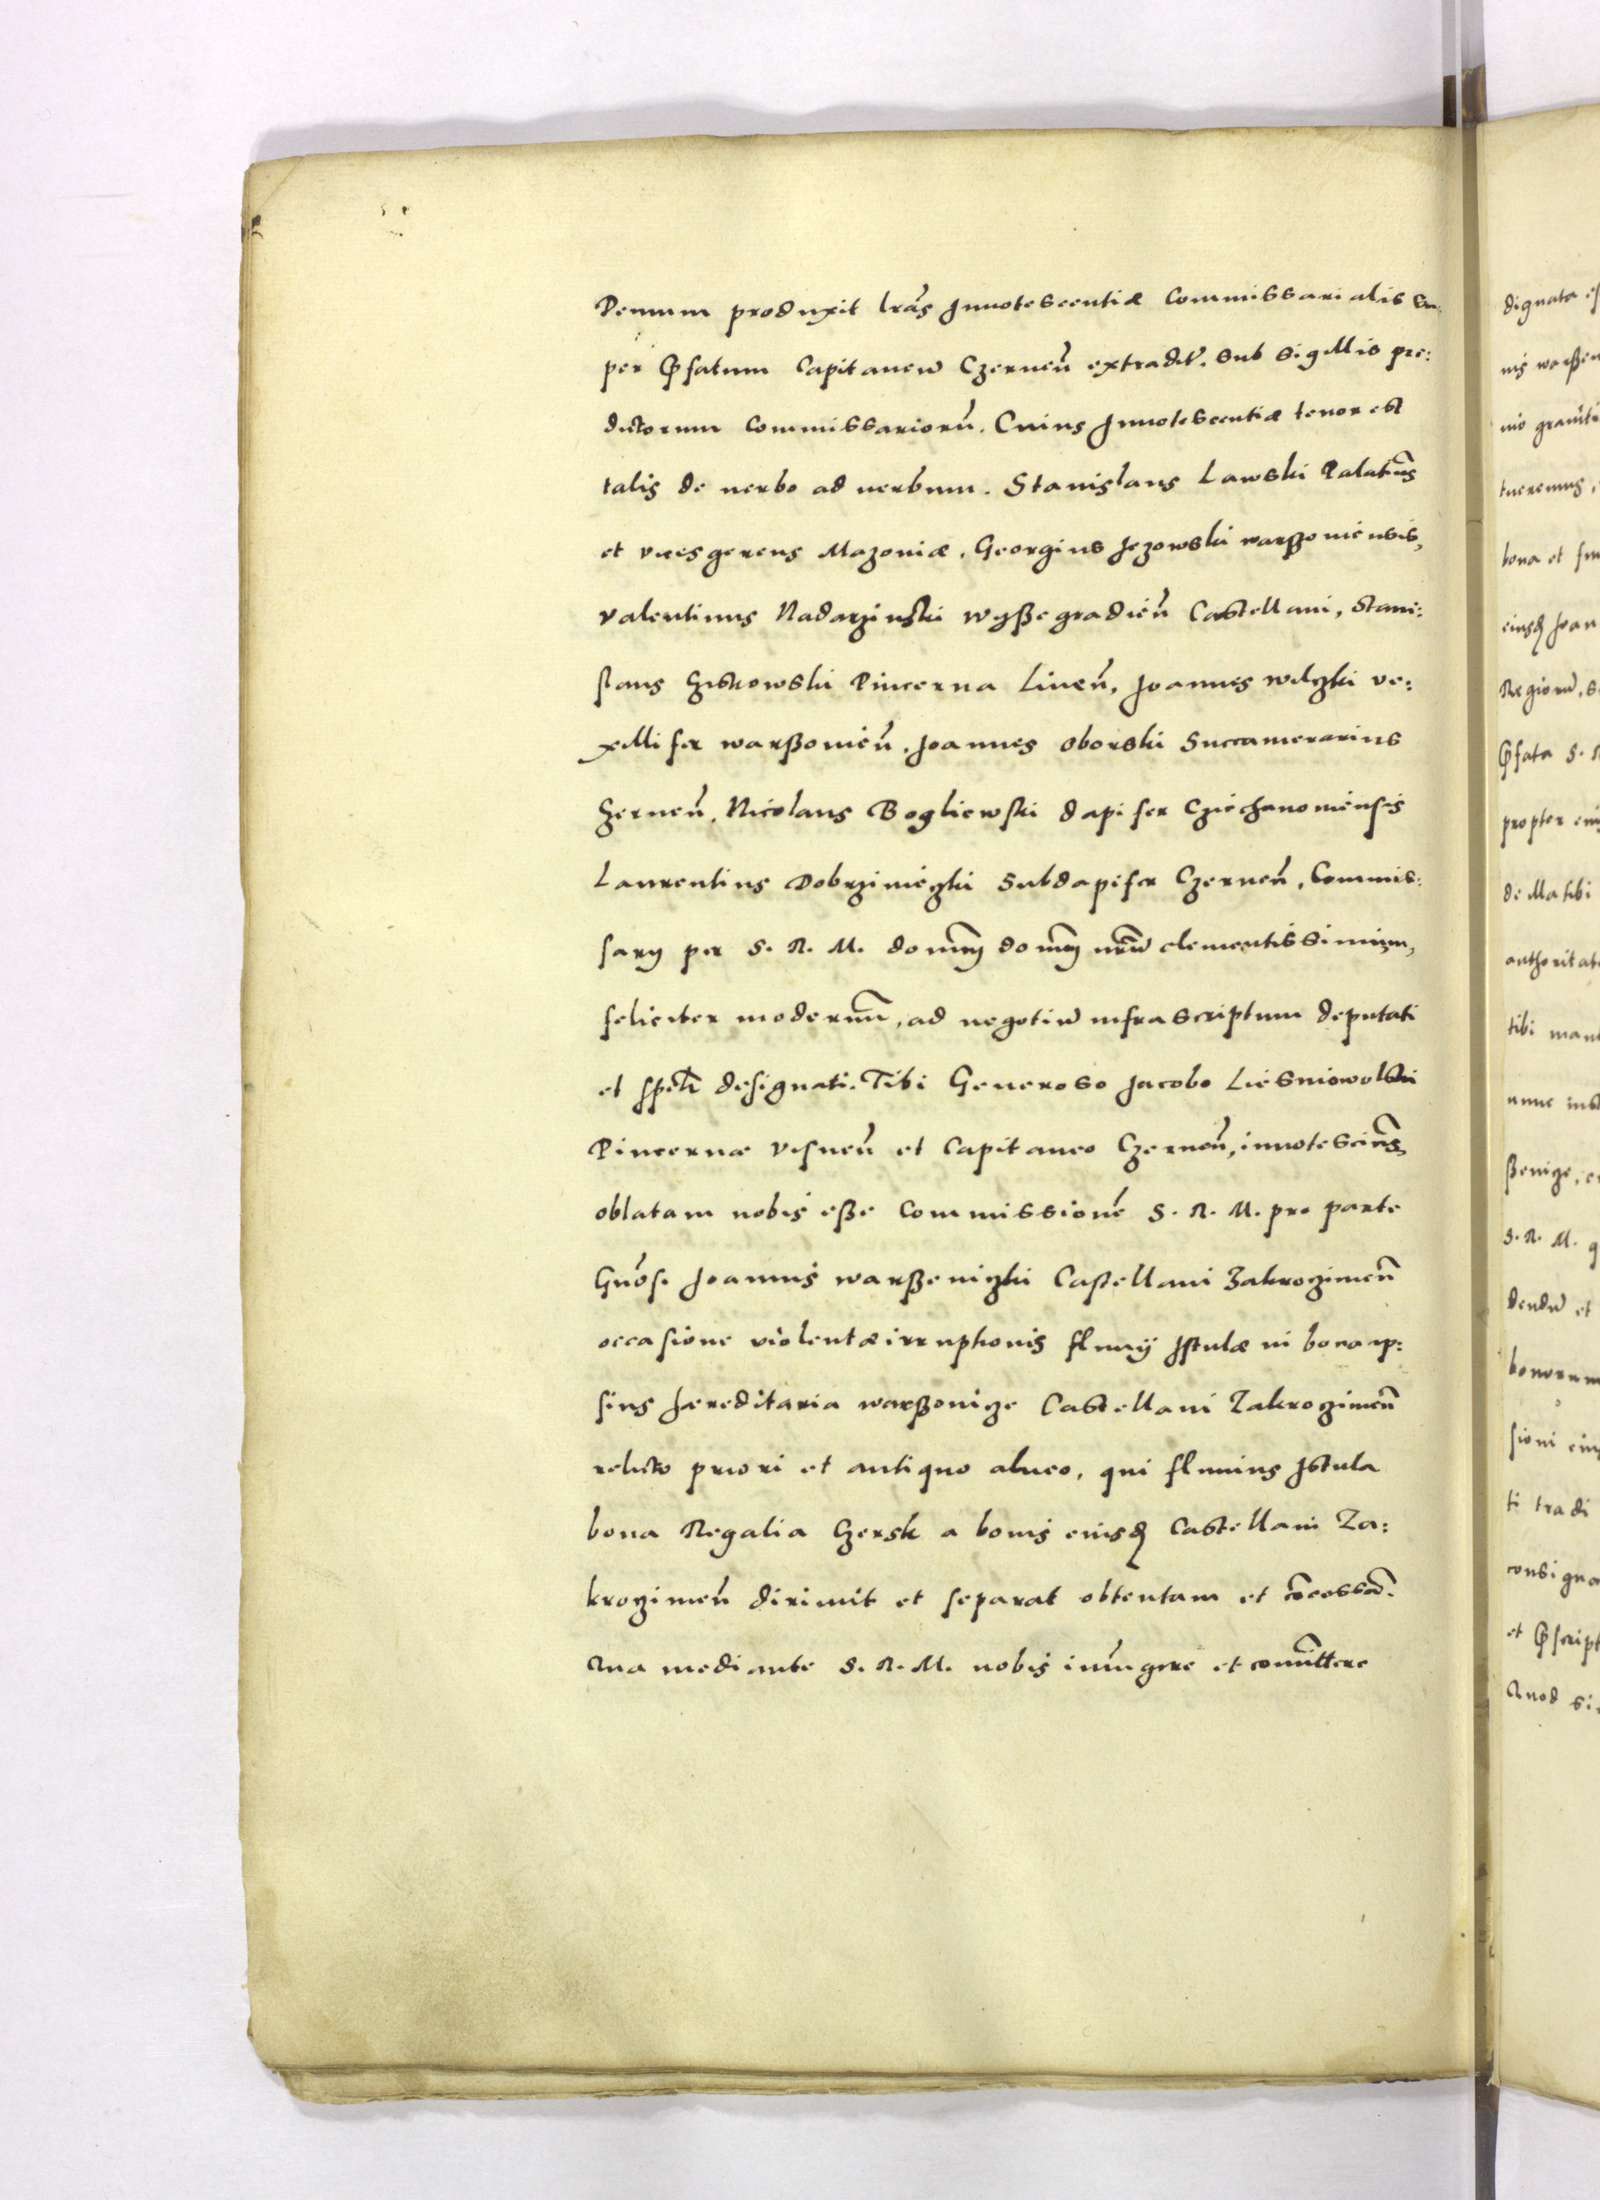 Demum produxit lrãs Innotescentiæ Commissarialis su
per Pfatum Capitaneũ Czerneñ extradit. sub sigillis pre:
dictorum Commissariorũ. Cuius Innotescentiæ tenor est
talis de uerbo ad uerbum. Stanislaus Lawski Palatiũs
et vicesgerens Mazoniæ, Georgius Jezowski warßouiensis,
Valentinus Nadarzinski wyßegradień Castellani, Stani:
slaus Czistkowski Pincerna Liueñ, Joannes wilczki ve:
xillifer warßouień, Joannes Oborski Succamerarius
Czerneñ, Nicolaus Bogliewski dapifer Cziechanouiensis
Laurentius Dobrziniezki Subdapifer Czerneñ, Commis:
sarij per S. R. M. domm̃ domm̃ nrũ clementissimum,
feliciter modernũ, ad negotiũ infrascriptum deputati
et spetł designati. Tibi Generoso Jacobo Liesniowolski
Pincernæ Visneñ et Capitaneo Czerneñ, innotescims̃
oblatam nobis eße Commissionẽ S. R. M. pro parte
Gñosi Joannis warßeniczki Castellani Zakrozimeñ
occasione violentæ irruptionis fluuij Istulæ in bona ip:
sius hæreditaria warßenize Castellani Zakrozimeñ
relicto priori et antiquo alueo, qui fluuius Istula
bona Regalia Czersk a bonis eiusd Castellani Za:
krozimeñ dirimit et separat obtentam et cõcessã.
Qua mediante S. R. M. nobis iniũgere et comĩttere
dignata
nis
nio
tueremus,
bona et
eiusd Joan
Regiorũ,
Pfata S. R
propter
de
authoritat
tibi
nunc
ßenize,
S. R. M. q
dendũ et
bonorum
sioni
ti tradi
consigna
et Pscript
Quod si